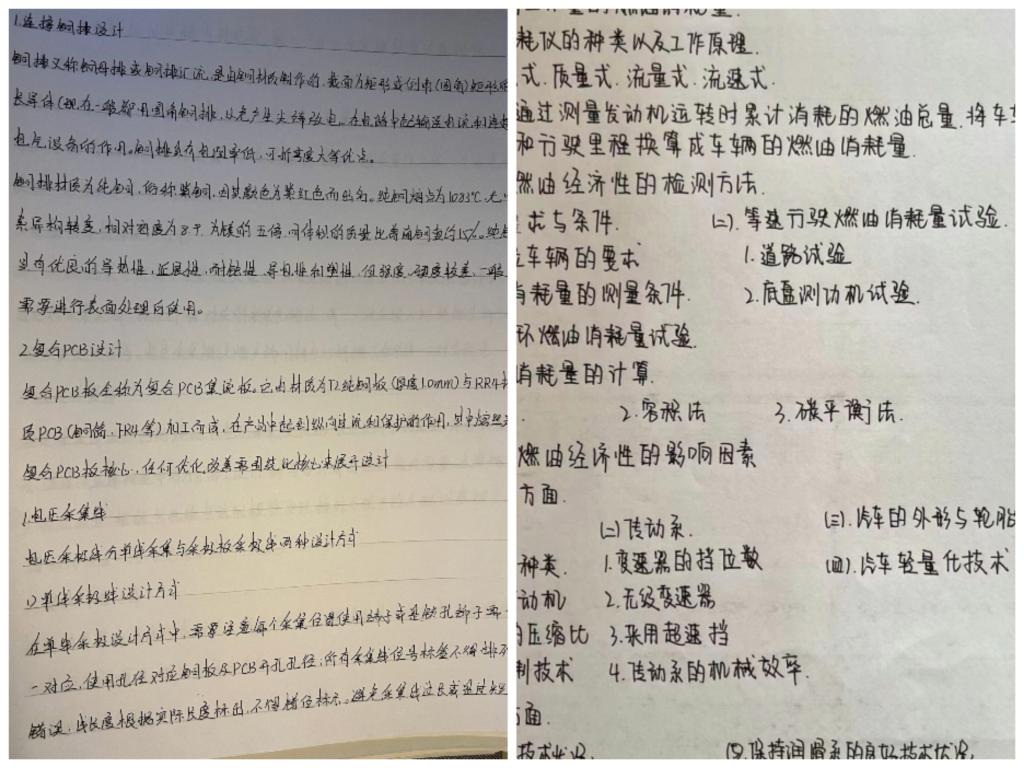 1.连接铜排设计
铜排又称铜母排或铜排汇流,是由铜材质制作的,截面为矩形或倒角(圆角)矩形的
长导体(现在一般都用圆角铜排,以免产生尖端放电。在电路中起输送电流和连接
电气设备的作用。铜排具有电阻率低,可折弯度大等优点。
铜排材质为纯铜,俗称紫铜,因其颜色为紫红色而出名。纯铜熔点为1083℃,无
素异构转变,相对密度为8.9,为镁的五倍,同体积的质量比普通钢重约15%。纯
具有优良的导热性,延展性,耐蚀性,导电性和塑性,但强度、硬度较差,一般
需要进行表面处理后使用。
2.复合PCB设计
复合PCB板全称为复合PCB集流板。它由材质为T2纯铜板(厚度1.0mm)与RR4
质PCB(铜箔、FR4等)加工而成,在产品中起到纵向过流和保护的作用,其中熔丝
复合PCB板核心,任何优化改善需围绕此核心来展开设计
1.电压采集线
电压采集线分单线采集与采集板采集线两种设计方式
1)单线采集线设计方式
在单线采集设计方式中,需要注意每个采集位置使用端子都是铁孔端子需一
一对应,使用孔径对应铜板及PCB开孔孔径;所有采集线位号标签不得排
错误,线长度根据实际长度标出,不得错位标示。避免采集线过长或过
耗仪的种类以及工作原理.
式.质量式.流量式.流速式.
通过测量发动机运转时累计消耗的燃油总量.将车
和行驶里程换算成车辆的燃油消耗量.
燃油经济性的检测方法.
求与条件. (二).等速行驶燃油消耗量试验.
车辆的要求 1.道路试验
消耗量的测量条件. 2.底盘测功机试验.
环燃油消耗量试验.
消耗量的计算.
2.容积法 3.碳平衡法.
燃油经济性的影响因素
方面.
(二)传动系. (三).汽车的外形与轮胎
种类. 1.变速器的挡位数 (四).汽车轻量化技术
动机 2.无级变速器
压缩比 3.采用超速挡
制技术 4.传动系的机械效率.
方面.
技术状况. (四.保持润滑系的良好技术状况.